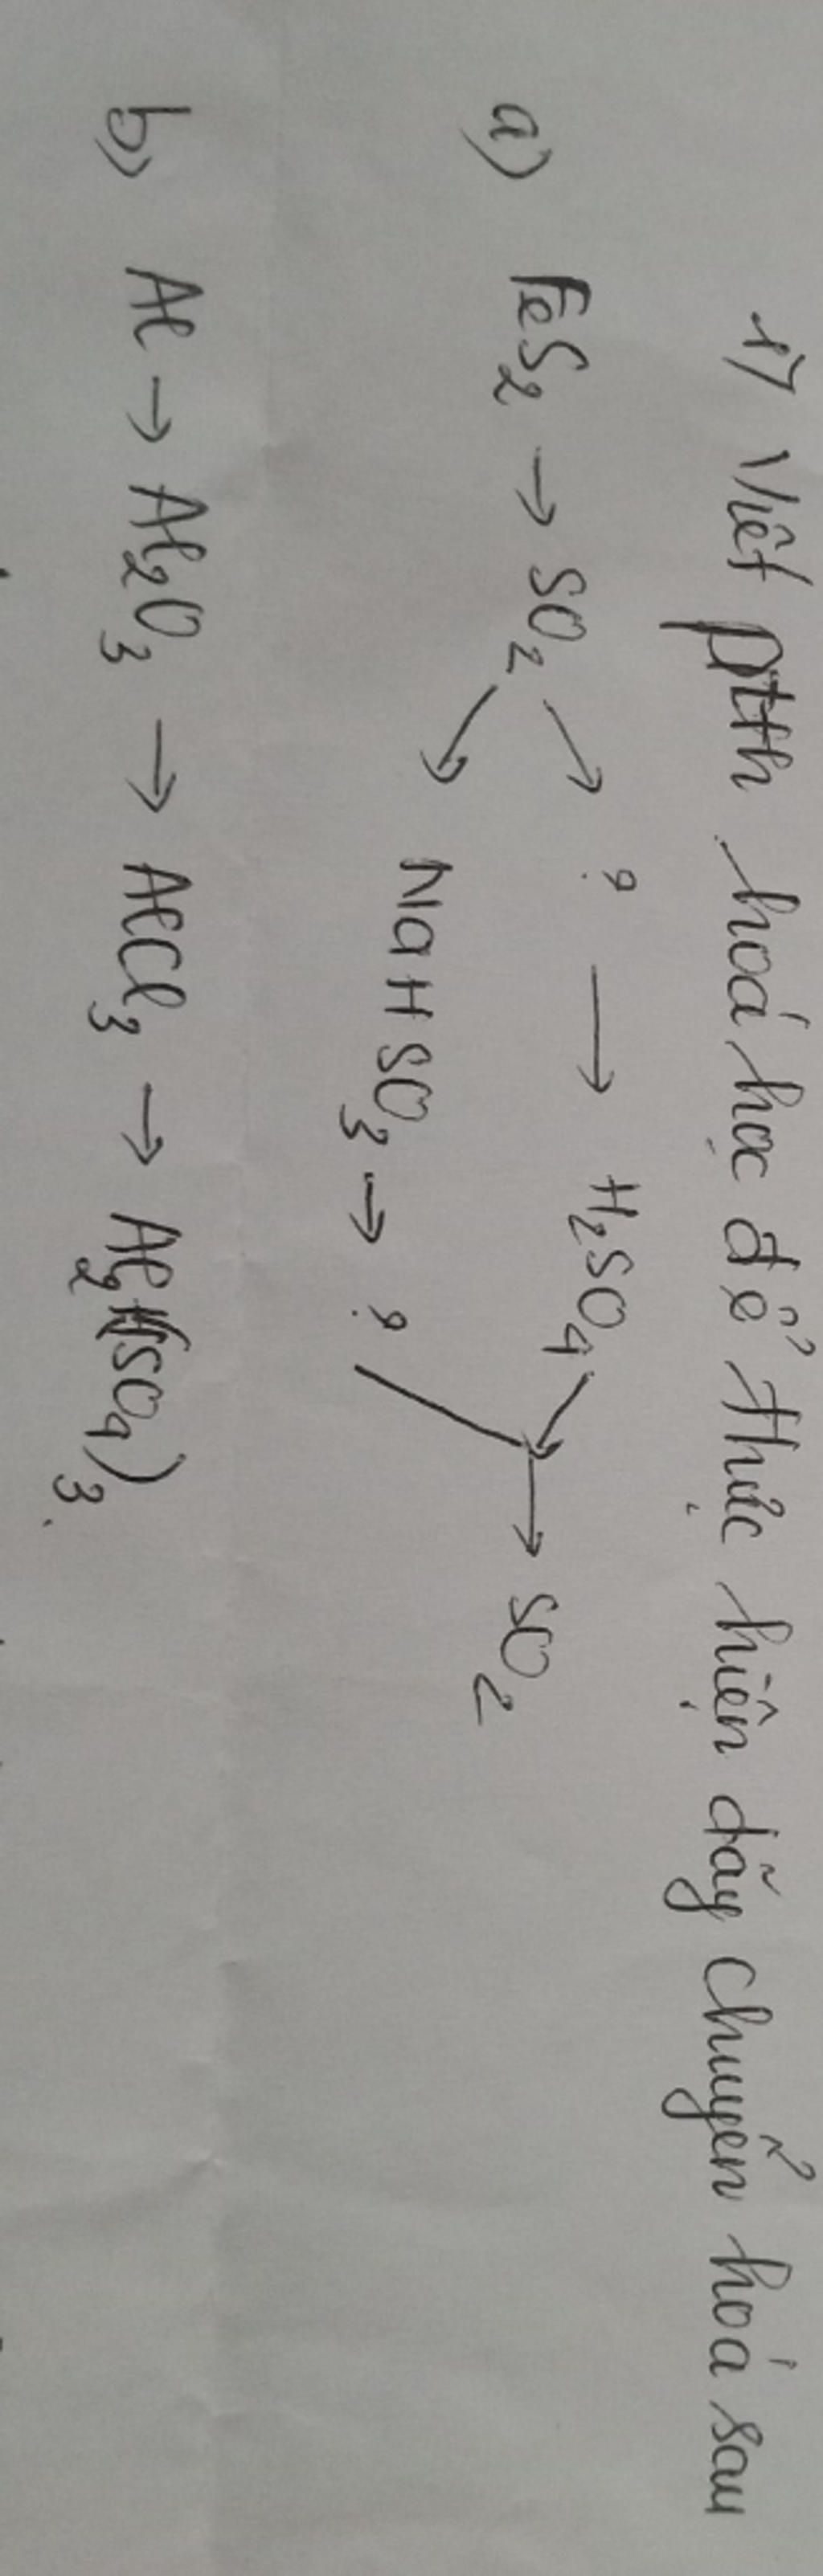 1) Viết ptth hoá học để thực hiện dãy chuyển hoá sau
a) FeS₂ → SO₂ → ? → H₂SO₄ → SO₂
→ NaHSO₃ → ?
b) Al → Al₂O₃ → AlCl₃ → Al₂(SO₄)₃.